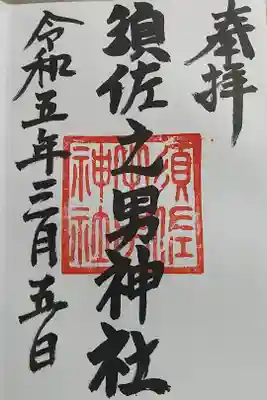 奉拝
須佐之男神社
須佐
之男
神社
令和五年三月五日